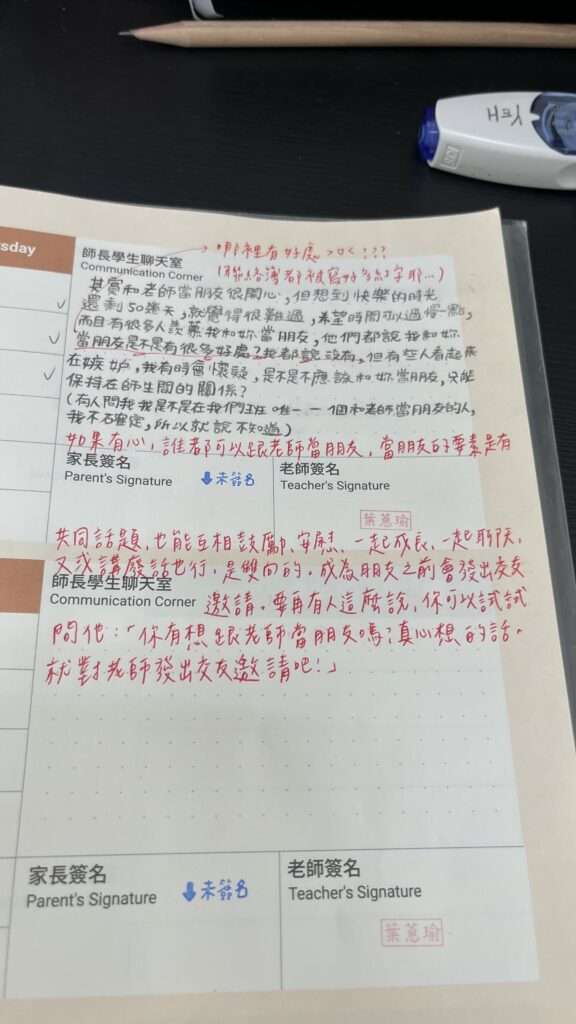 YEH
rsday
師長學生聊天室
→哪裡有好處>o<???
Communication Corner
(聯絡簿都被寫好多紅字耶…)
其實和老師當朋友很開心,但想到快樂的時光
還剩50幾天,就覺得很難過,希望時間可以過慢一點,
而且有很多人羨慕我和妳當朋友,他們都說我和妳
當朋友是不是有很多好處?我都說沒有,但有些人看起來
在嫉妒,我有時會懷疑,是不是不應該和妳當朋友,只能
保持在師生間的關係?
(有人問我我是不是在我們班唯一一個和老師當朋友的人,
我不確定,所以就說不知道)
如果有心,誰都可以跟老師當朋友,當朋友的要素是有
家長簽名
Parent's Signature
↓未簽名
老師簽名
Teacher's Signature
葉蕙瑜
共同話題,也能互相鼓勵、安慰、一起成長、一起聊天,
又或講廢話也行,是雙向的。成為朋友之前會發出交友
師長學生聊天室
Communication Corner
邀請。要再有人這麼說,你可以試試
問他:「你有想跟老師當朋友嗎?真心想的話,
就對老師發出交友邀請吧!」
家長簽名
Parent's Signature
↓未簽名
老師簽名
Teacher's Signature
葉蕙瑜